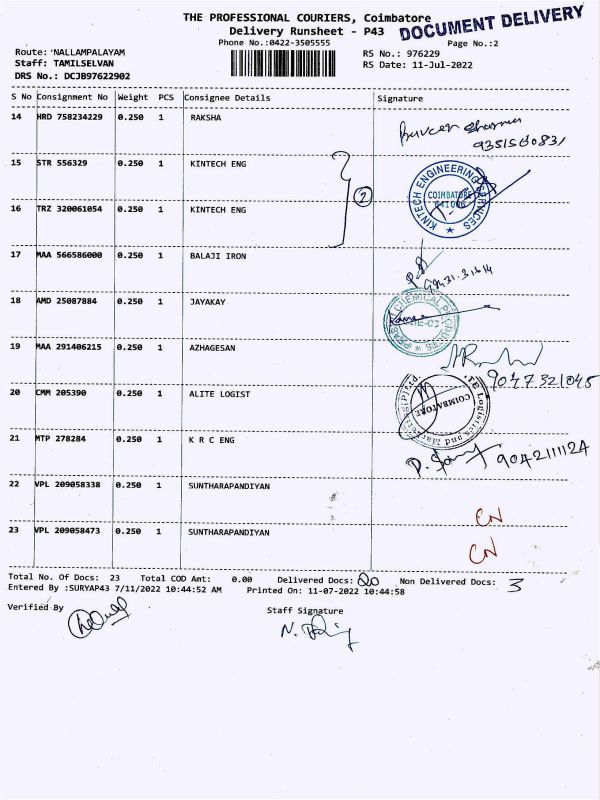 THE PROFESSIONAL COURIERS, Coimbatore
DOCUMENT DELIVERY
Delivery Runsheet - P43
Phone No.:0422-3505555
Page No.:2
Route: NALLAMPALAYAM
RS No.: 976229
Staff: TAMILSELVAN
RS Date: 11-Jul-2022
DRS No.: DCJB97622902
S No Consignment No Weight PCS Consignee Details Signature
14 HRD 758234229 0.250 1 RAKSHA
15 STR 556329 0.250 1 KINTECH ENG
2
KINTECH ENGINEERING SERVICES
COIMBATORE
641006
16 TRZ 320061054 0.250 1 KINTECH ENG
17 MAA 566586000 0.250 1 BALAJI IRON
18 AMD 25087884 0.250 1 JAYAKAY
19 MAA 291406215 0.250 1 AZHAGESAN
9047321045
20 CMM 205390 0.250 1 ALITE LOGIST
COIMBATORE
21 MTP 278284 0.250 1 K R C ENG
9042111124
22 VPL 209058338 0.250 1 SUNTHARAPANDIYAN
CN
23 VPL 209058473 0.250 1 SUNTHARAPANDIYAN
CN
Total No. Of Docs: 23 Total COD Amt: 0.00 Delivered Docs: 20 Non Delivered Docs: 3
Entered By :SURYAP43 7/11/2022 10:44:52 AM Printed On: 11-07-2022 10:44:58
Verified By
Staff Signature